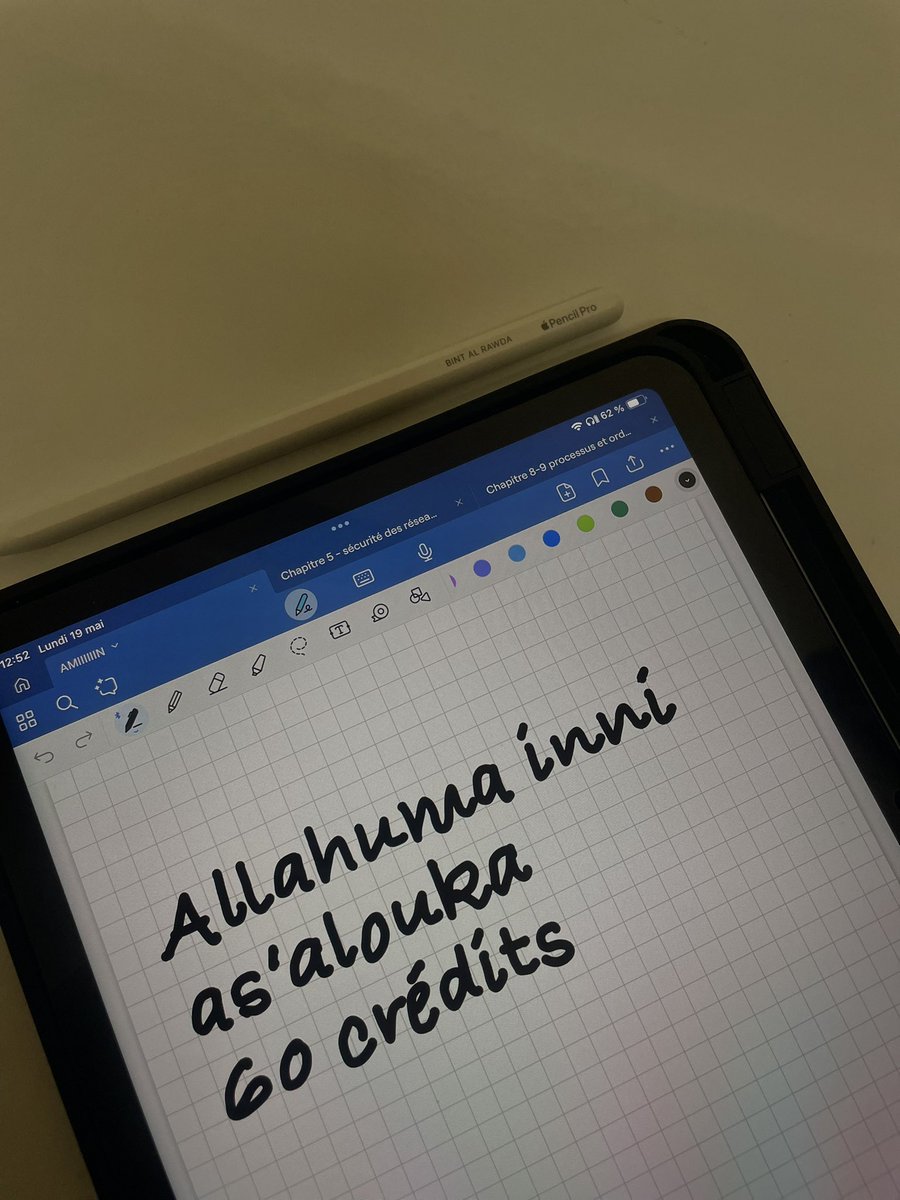 BINT AL RAWDA Pencil Pro
12:52 Lundi 19 mai
62 %
AMIIIIIN
Chapitre 5 - sécurité des résea...
Chapitre 8-9 processus et ord...
Allahuma inni
as'alouka
60 crédits